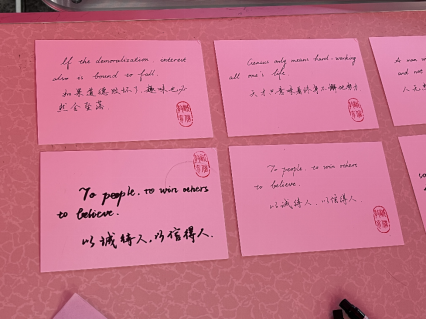 If the demoralization interest
also is bound to fall.
如果道德败坏了,趣味也必
然会堕落
Genius only means hard-working
all one's life.
天才只意味着终身不懈地努力
As man
and not
人无
To people, to win others
to believe.
以诚待人,以信得人.
To people, to win others
to believe.
以诚待人,以信得人.